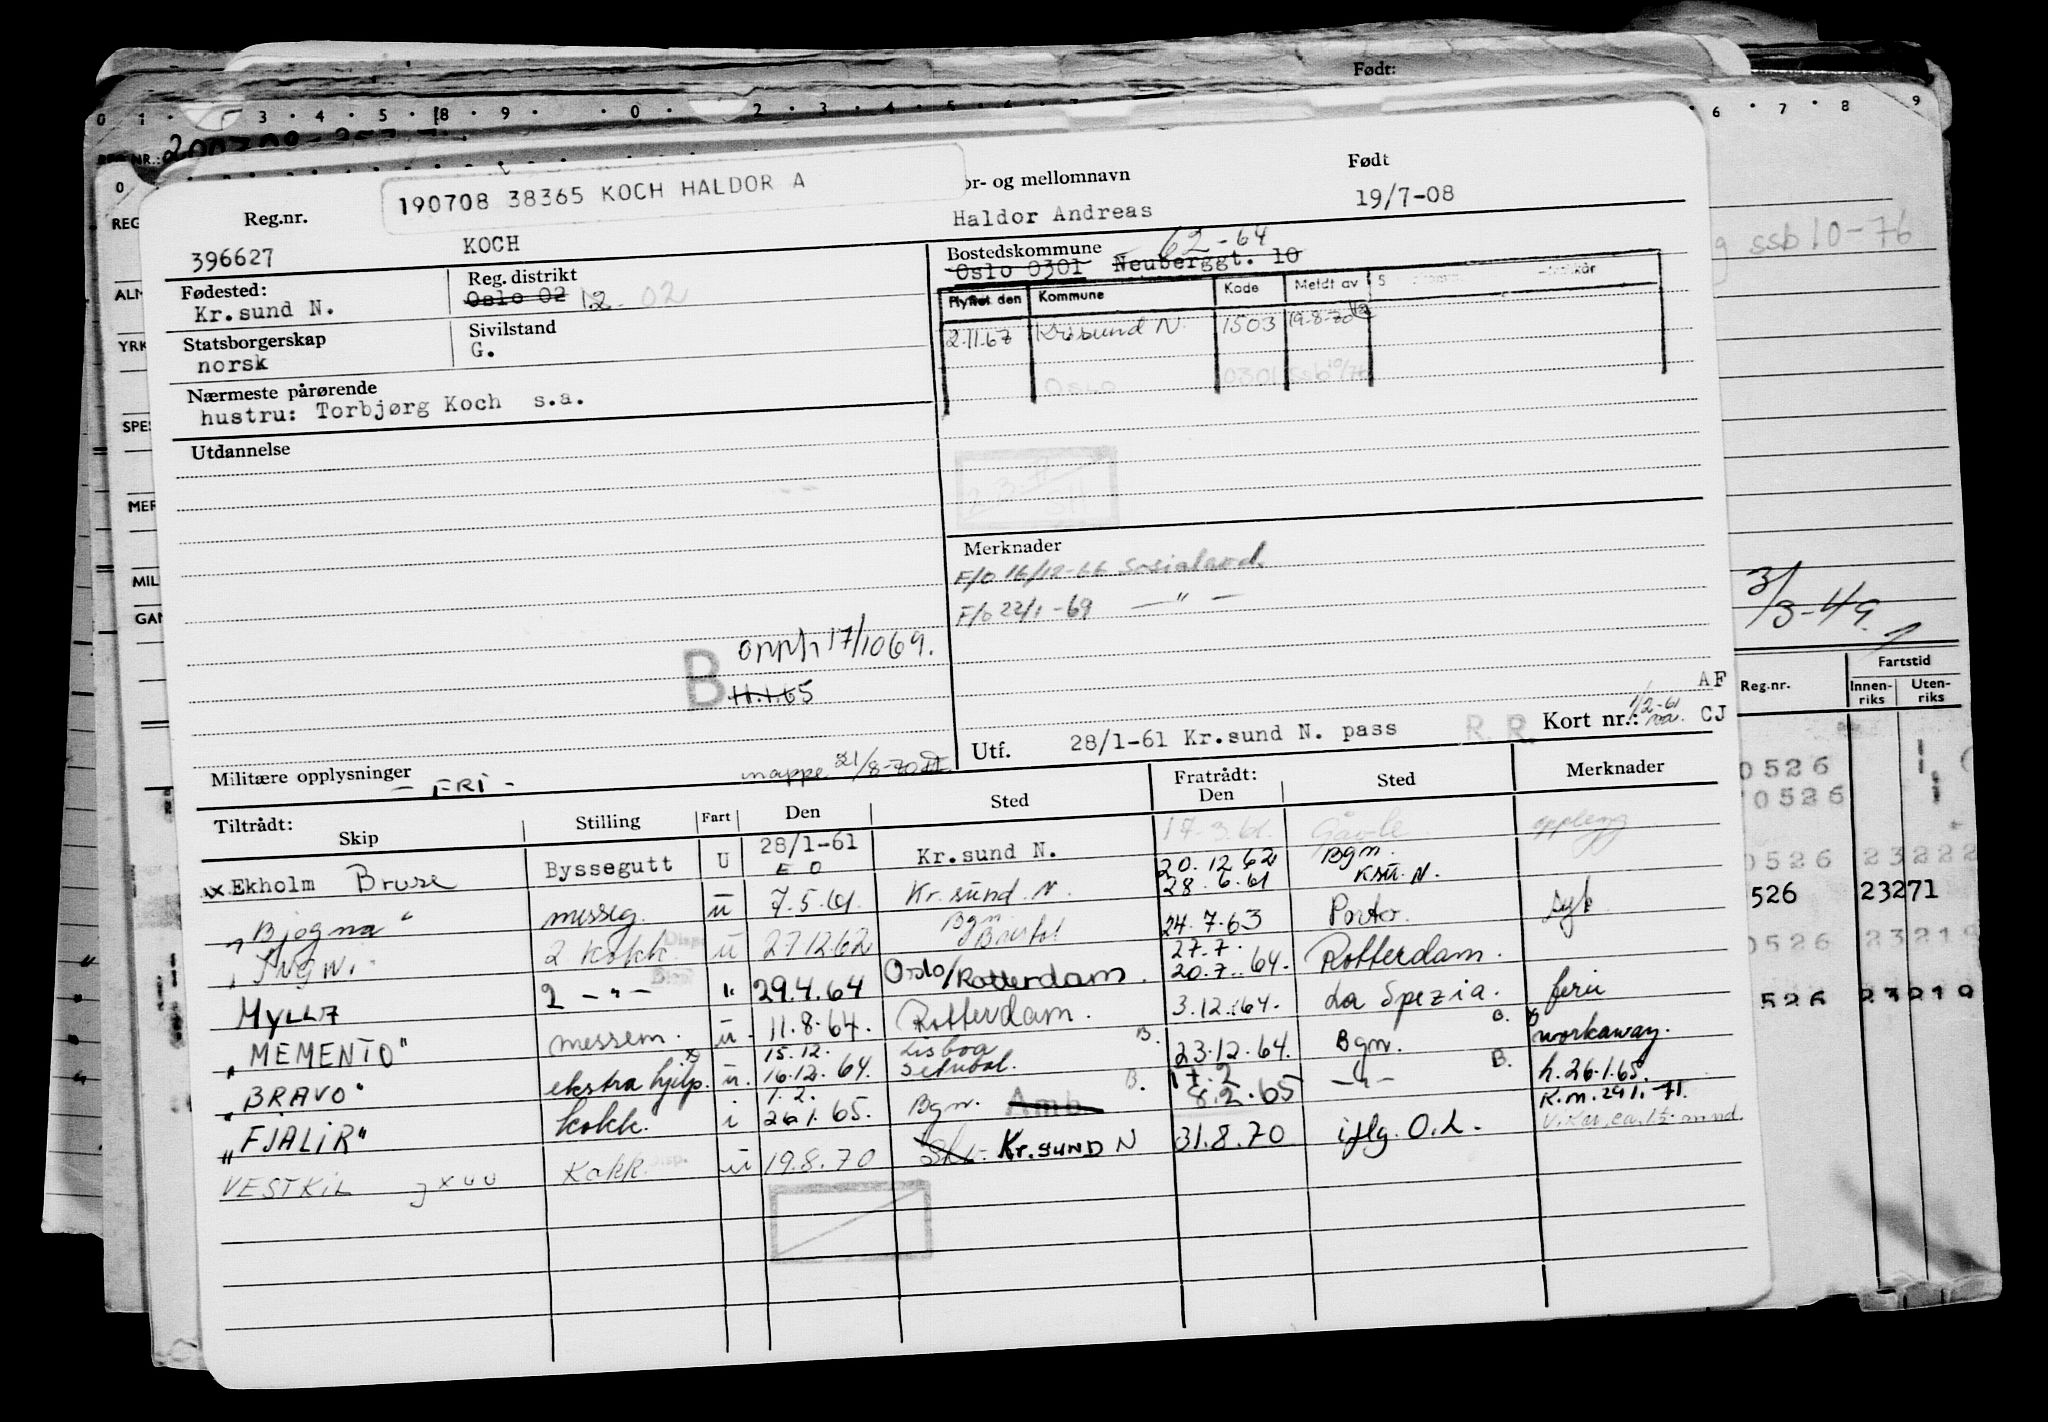 Født:
0 1 · 3 · 4 · 5 · 8 · 9 · · 0 · 2 · 3 · 4 · 5 · 6 · 7 6 · 7 · 8 9
190708 38365 KOCH HALDOR A
or- og mellomnavn
Født
Reg.nr.
Haldor Andreas
19/7-08
396627
KOCH
Bostedskommune 62-64
Oslo 0301 Neuberggt. 10
ssb 10-76
Fødested:
Kr.sund N.
Reg. distrikt
Oslo 02 12 02
Flyttet den Kommune Kode Meldt av
2.11.67 Kr.sund N. 1503 19-8-70
Oslo 0301 ssb 10/76
Statsborgerskap
norsk
Sivilstand
G.
Nærmeste pårørende
hustru: Torbjørg Koch s.a.
Utdannelse
Merknader
F/O 16/12-66 Sosialavd.
F/O 22/1-69 — " —
3/3-49
B opph 17/10 69.
11.1.65
Utf. 28/1-61 Kr.sund N. pass
R. R. Kort nr.: 1/2-61
AF
CJ
Reg.nr.
Fartstid
Innen-riks
Uten-riks
Militære opplysninger - FRI -
mappe 21/8-70
Tiltrådt:
Skip Stilling Fart Den Sted Fratrådt: Den Sted Merknader
Ekholm Bruse Byssegutt U 28/1-61 E O Kr.sund N. 17-3.61. Gävle
20.12.62 Bgn.
"Bjegna" messeg. u 7.5.61. Kr.sund N. 28.6.61 Ksu. N.
"INGWI" 2 kokk u 27.12.62 Bgn Bristol 24.7.63 Porto. syk
MYLLA 2 — " — " 29.4.64 Oslo/Rotterdam. 27.7. 20.7.64. Rotterdam.
"MEMENTO" messem. u. 11.8.64. Rotterdam. 3.12.64. La Spezia. ferie
"BRAVO" ekstra hjelp. u. 15.12. 16.12.64. Lisboa Setubal. B. 23.12.64. Bgn. B. workaway.
"FJALIR" kokk. i 1.2. 26.1.65. Bgn. Amb B. 17.2 8.2.65 — " — B. h.26.1.65.
K.m. 29.1.-71.
VESTKIL JXUU Kokk. u 19.8.70 Kr.SUND N 31.8.70 iflg. O.L.
0526
0526
0526 23222
526 23271
0526 23219
526 23219